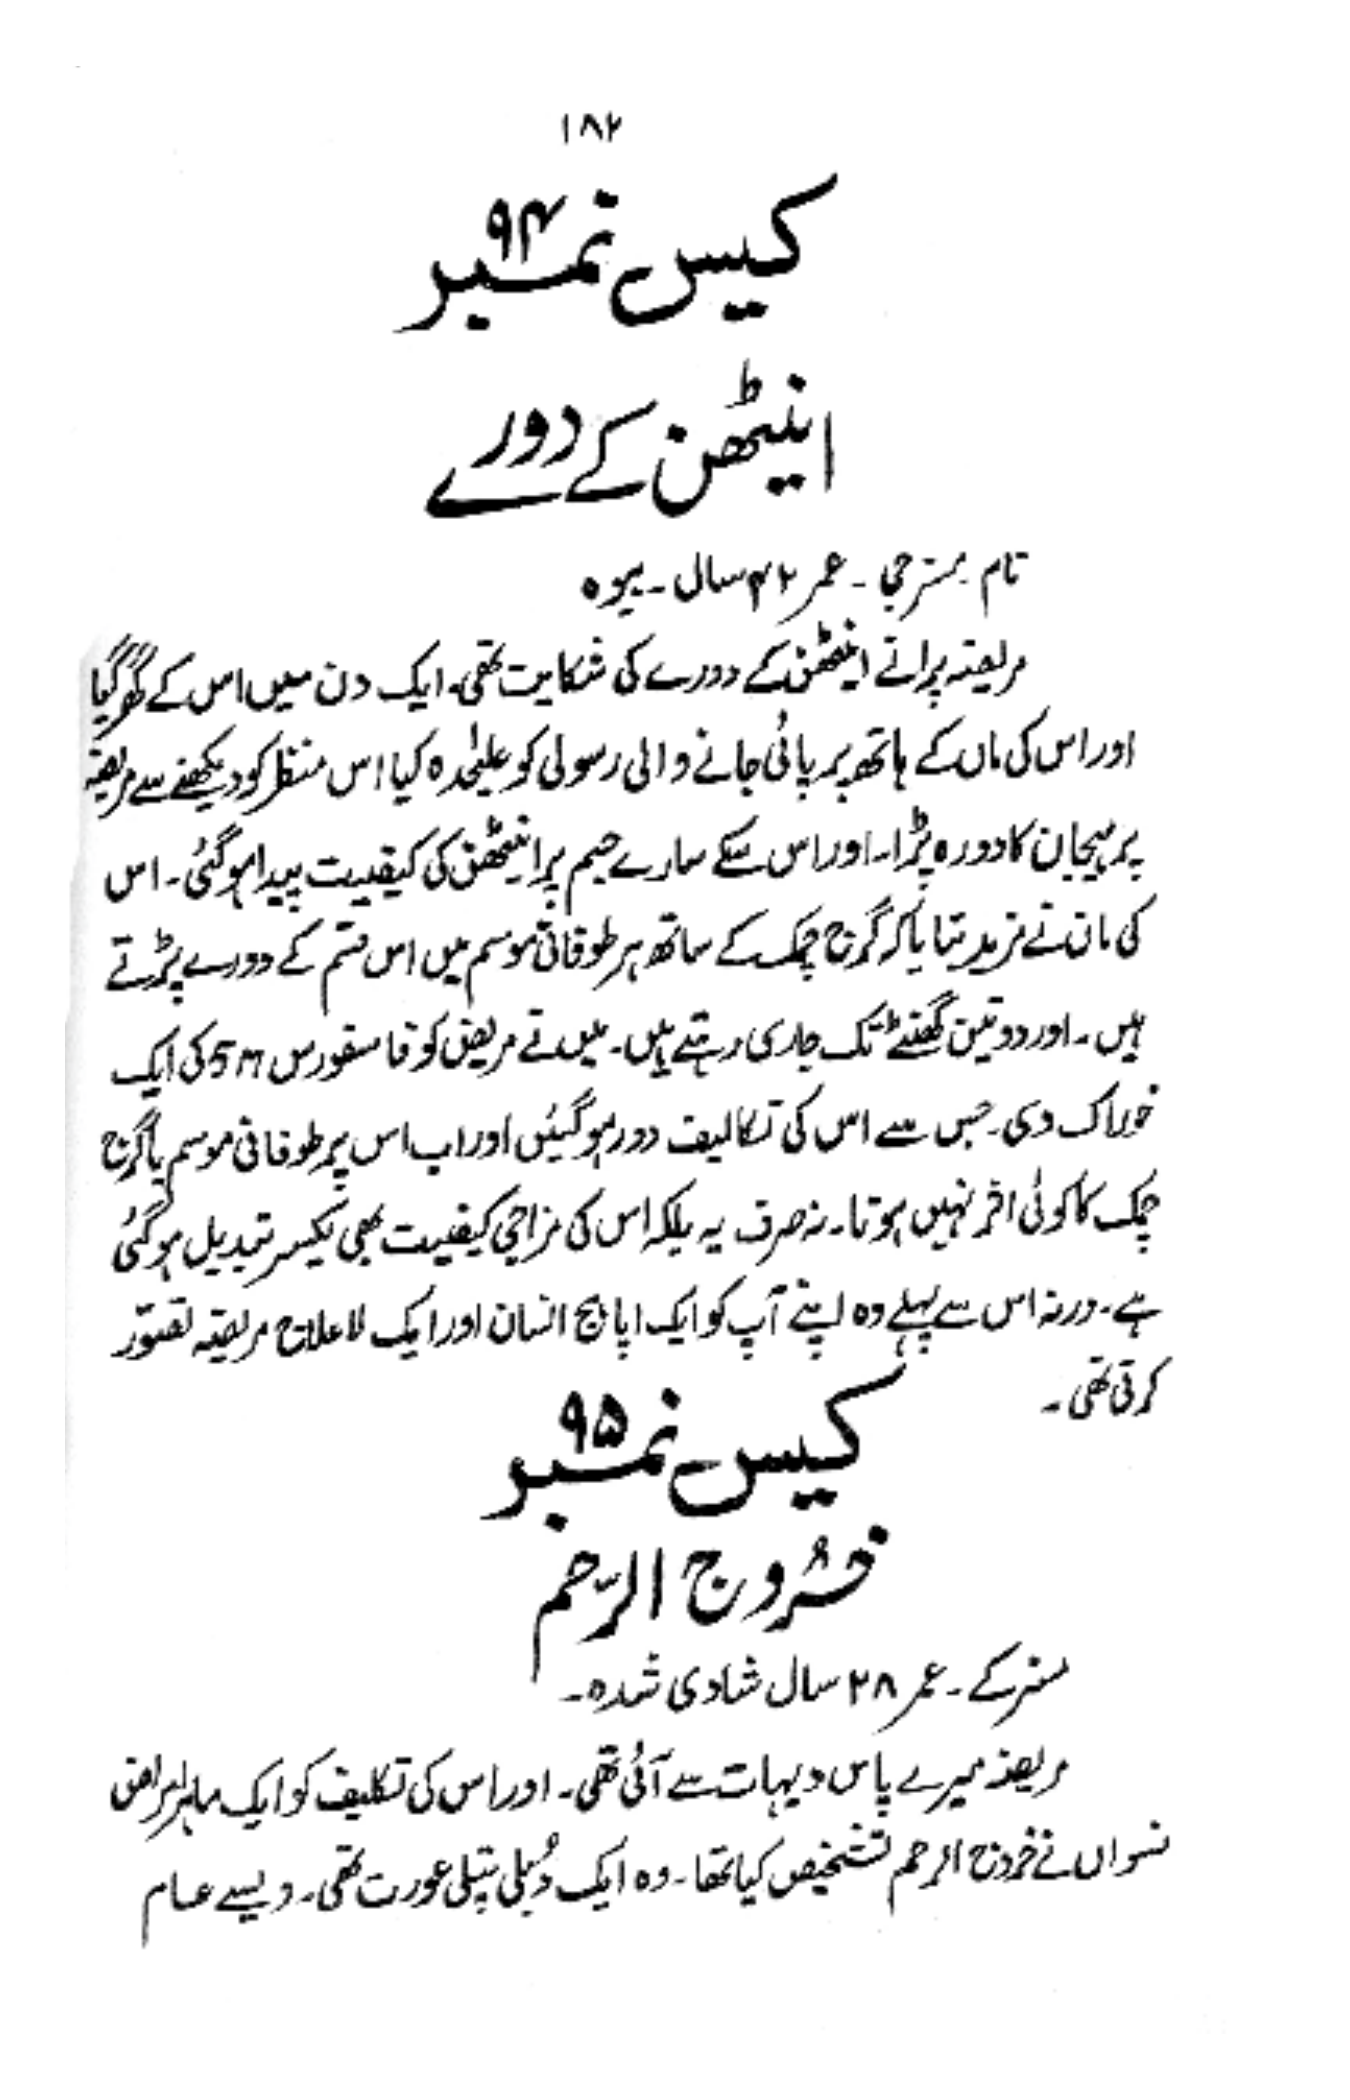 ۱۸۲
کیس نمبر ۹۴
اینٹھن کے دورے
نام مسز جی ۔ عمر ۴۲ سال ۔ بیوہ
مریضہ پرانے اینٹھن کے دورے کی شکایت تھی۔ ایک دن میں اس کے گھر گیا
اور اس کی ماں کے ہاتھ پر پائی جانے والی رسولی کو علیٰحدہ کیا اس منظر کو دیکھنے سے مریضہ
پر ہیجان کا دورہ پڑا۔ اور اس کے سارے جسم پر اینٹھن کی کیفیت پیدا ہو گئی۔ اس
کی ماں نے مزید بتایا کہ گرج چمک کے ساتھ ہر طوفانی موسم میں اس قسم کے دورے پڑتے
ہیں ۔ اور دو تین گھنٹے تک جاری رہتے ہیں۔ میں نے مریض کو فاسفورس 5M کی ایک
خوراک دی۔ جس سے اس کی تکالیف دور ہو گئیں اور اب اس پر طوفانی موسم یا گرج
چمک کا کوئی اثر نہیں ہوتا۔ نہ صرف یہ بلکہ اس کی مزاجی کیفیت بھی یکسر تبدیل ہو گئی
ہے۔ ورنہ اس سے پہلے وہ اپنے آپ کو ایک اپاہج انسان اور ایک لاعلاج مریضہ تصوّر
کرتی تھی ۔
کیس نمبر ۹۵
خُروج الرّحم
مسز کے ۔ عمر ۲۸ سال شادی شدہ ۔
مریضہ میرے پاس دیہات سے آئی تھی۔ اور اس کی تکلیف کو ایک ماہر امراض
نسواں نے خروج الرحم تشخیص کیا تھا۔ وہ ایک دُبلی پتلی عورت تھی۔ ویسے عام